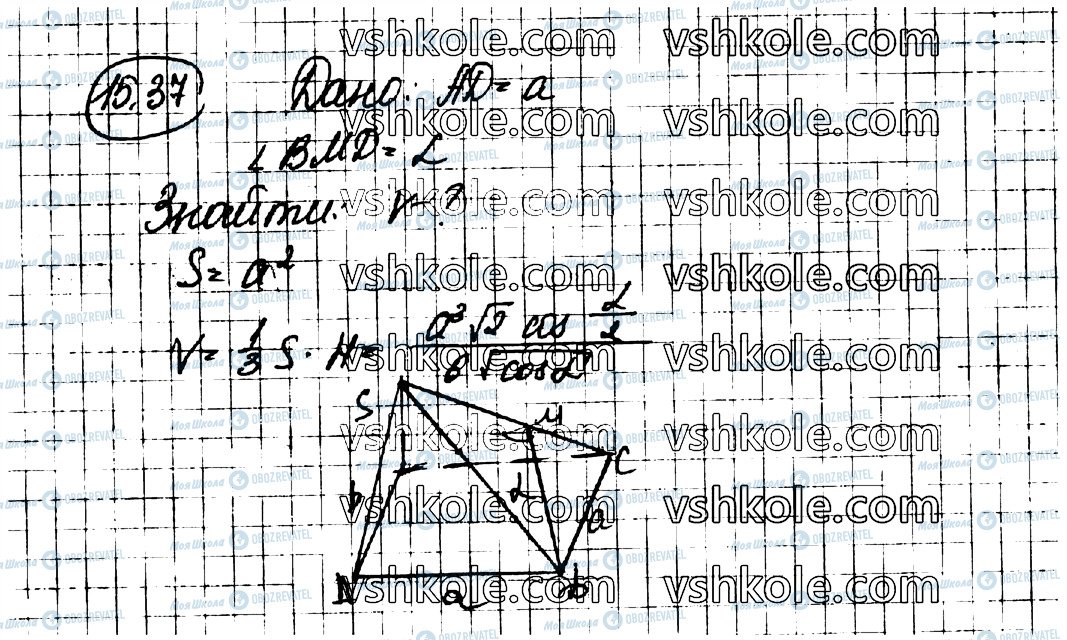 15.37
Дано: AD = a
∠ BMD = α
Знайти: V - ?
S = a²
V = 1/3 S · H = a³ √2 cos α/2 / 6 √cos α
S
M
C
b
α
a
a
b
vshkole.com vshkole.com
vshkole.com vshkole.com
vshkole.com vshkole.com
vshkole.com vshkole.com
vshkole.com vshkole.com
vshkole.com vshkole.com
vshkole.com vshkole.com
vshkole.com vshkole.com
Моя Школа OBOZREVATEL